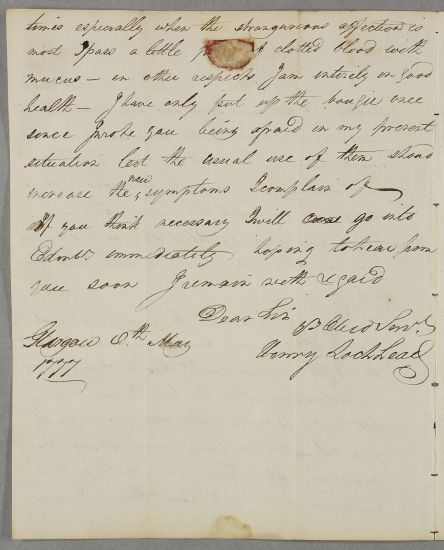 times especially when the strangurious affection is
most I pass a little clotted blood with
mucus – in other respects I am intirely in good
health – I have only put up the bougie once
since I wrote you being afraid in my present
situation lest the usual use of them should
increase the new symptoms I complain of
If you think necessary I will go into
Edinr. immediately hoping to hear from
you soon I remain with regard
Dear Sir
Obedt Servt.
Henry Lochhead
Glasgow 8th May
1777